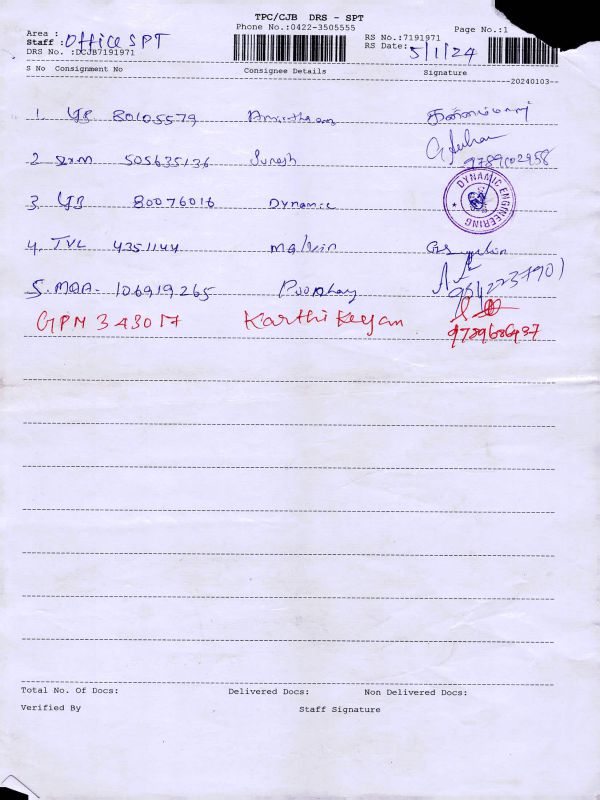 TPC/CJB DRS - SPT
Phone No.:0422-3505555
Page No.:1
Area :
RS No.:7191971
Staff : Office SPT
RS Date: 5/1/24
DRS No. :DCJB7191971
S No Consignment No Consignee Details Signature
20240103
1. 80105579
2 505635136 Suresh
9789102958
3. 80076016 Dynamic
DYNAMIC ENGINEERING
4. TVL 4351144 Melvin
5. MAA- 106919265
GPN 343017 Karthikeyan
9789686437
Total No. Of Docs: Delivered Docs: Non Delivered Docs:
Verified By Staff Signature